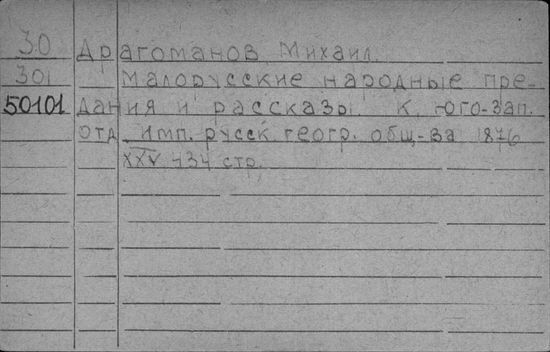 30 Драгоманов Михаил.
301 Малорусские народные пре-
50101 дания и рассказы. К. Юго-зап.
отд. имп. русск. геогр. общ-ва 1876
XXV, 434 стр.